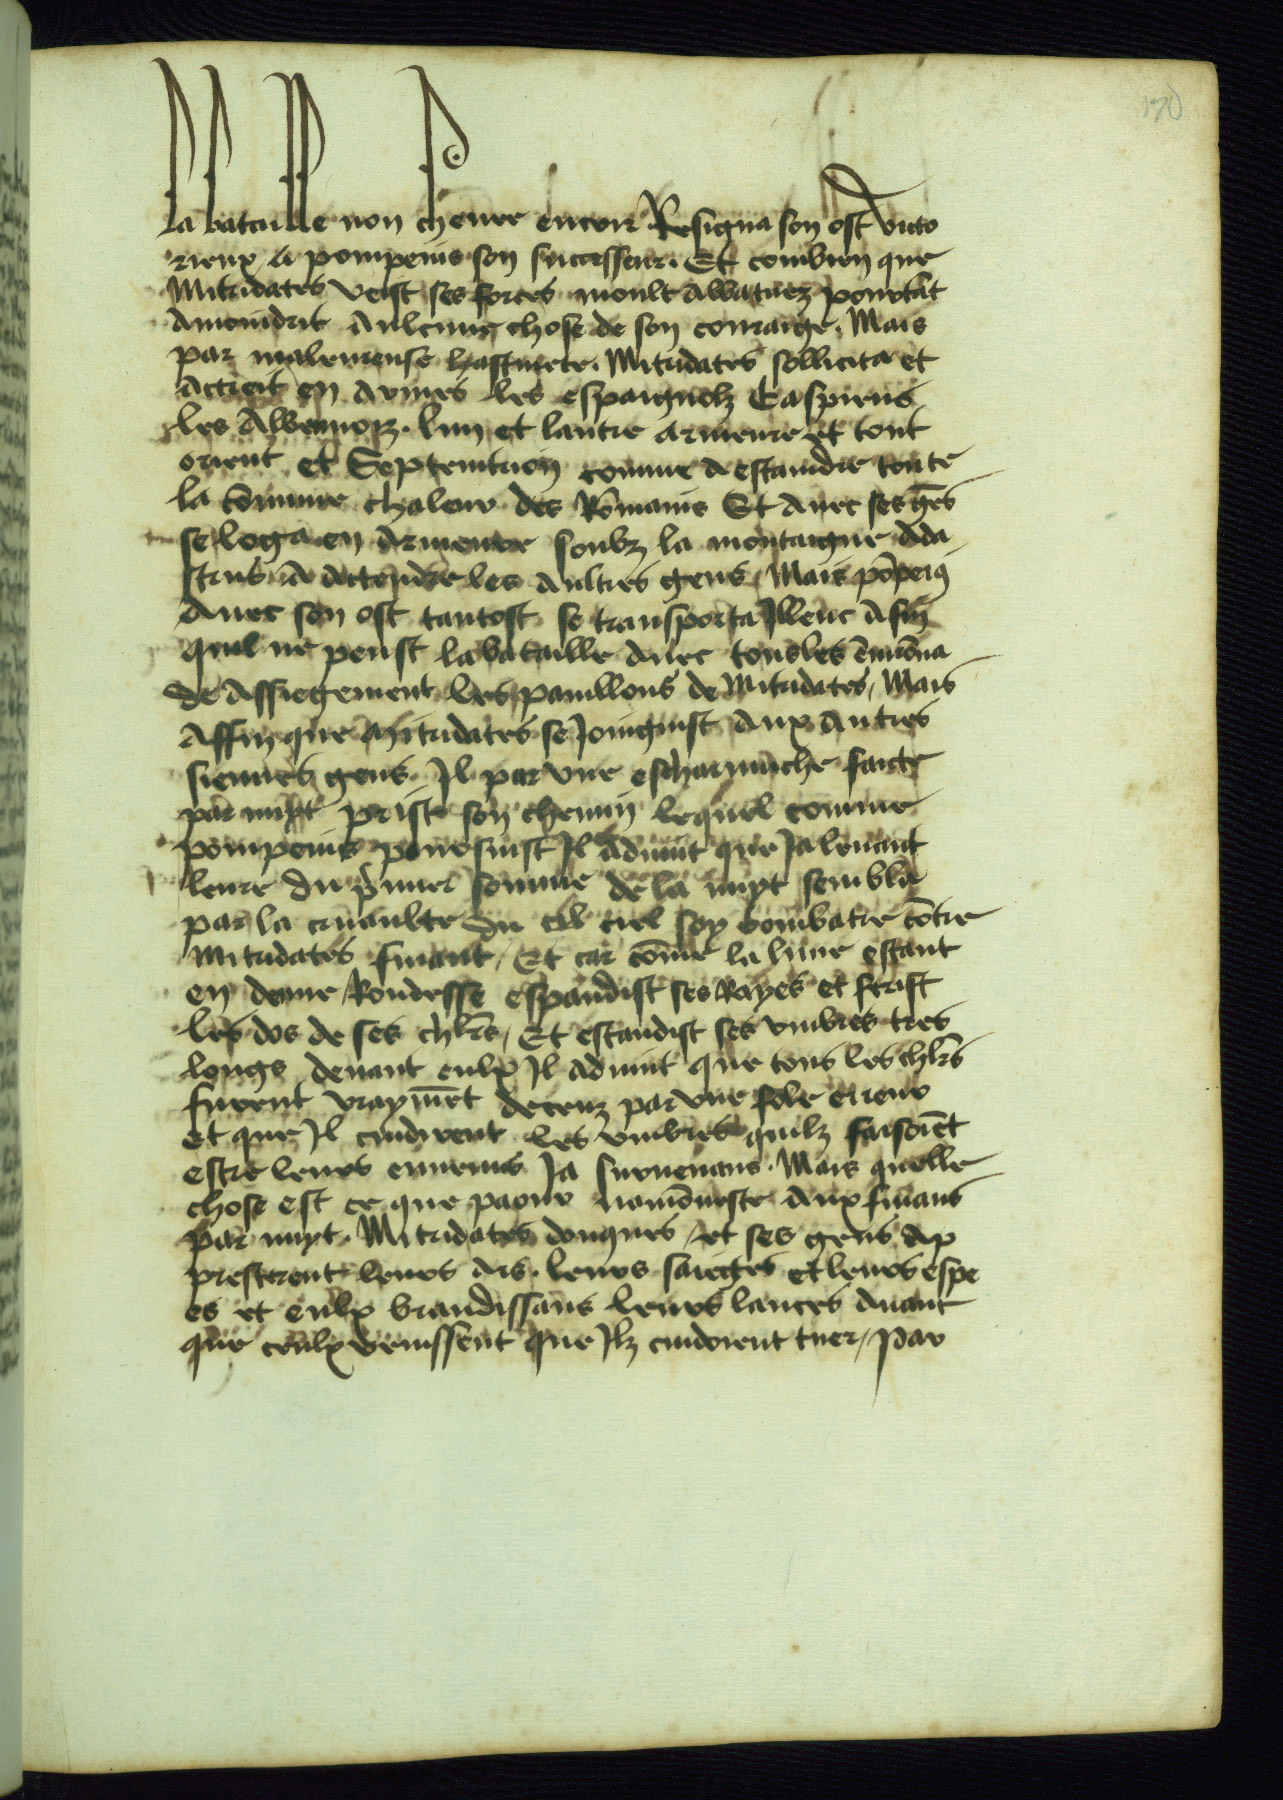 170
la bataille non chevee encore Resigna son ost victo
rieux a pompeius son successeur. Et combien que
Mitridates veist ses forces moult abbatuez pourtāt
amoindrit aulcune chose de son couraige. Mais
par maleureuse hastivete. Mitridates sollicita et
actrait en armes les espaignolz Caspiens
les Albeniois. lun et lautre armenie et tout
orient et Septentrion comme a estaindre toute
la cōmune chaleur des Rōmains Et avec ses gēs
se loga en Armenie soubz la montaigne Ada
strus a actendre les aultres gens, Mais pōpeiꝰ
avec son ost tantost se transporta Illenc Afin
quil ne peust la bataille avec tous les ēnvirōna
de assiegement les pavillons de Mitridates, Mais
Affin que Mitridates se Joingnist aux autres
siennes gens. Il par une escharmuche faicte
par nuyt prist son chemin lequel comme
pompeius poursuist Il advint que Ja levant
leure du p̄mier somme de la nuyt sembla
par la cruaulte du ciel soy combatre cōtre
Mitridates fuiant, Et car cōme la lune estant
en demie Rondesse espandist ses Rayes et ferist
les dos de ses chl̄rs, Et estandist ses umbres tres
longs devant eulx Il advint que tous les chl̄rs
furent vraymēt deceuz par une fole erreur
et que Il cuidirent les umbres quilz faisoiēt
estre leurs ennemis Ja survenans. Mais quelle
chose est ce que paour namōneste aux fuians
par nuyt. Mitridates donques et ses gens ap
presterent leurs ars. leurs saiectes et leurs espe
es et eulx brandissans leurs lances avant
que ceulx venissent que Ilz cuidoient tuer, par